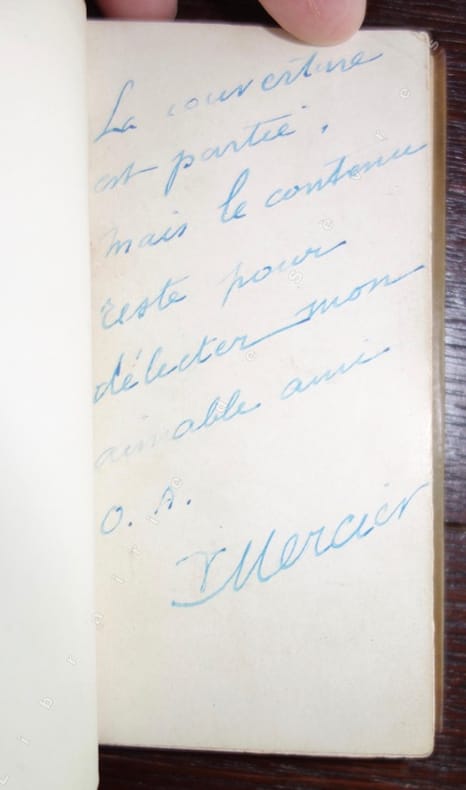 La couverture
est partie,
mais le contenu
reste pour
délecter mon
aimable ami
O. A.
Mercier